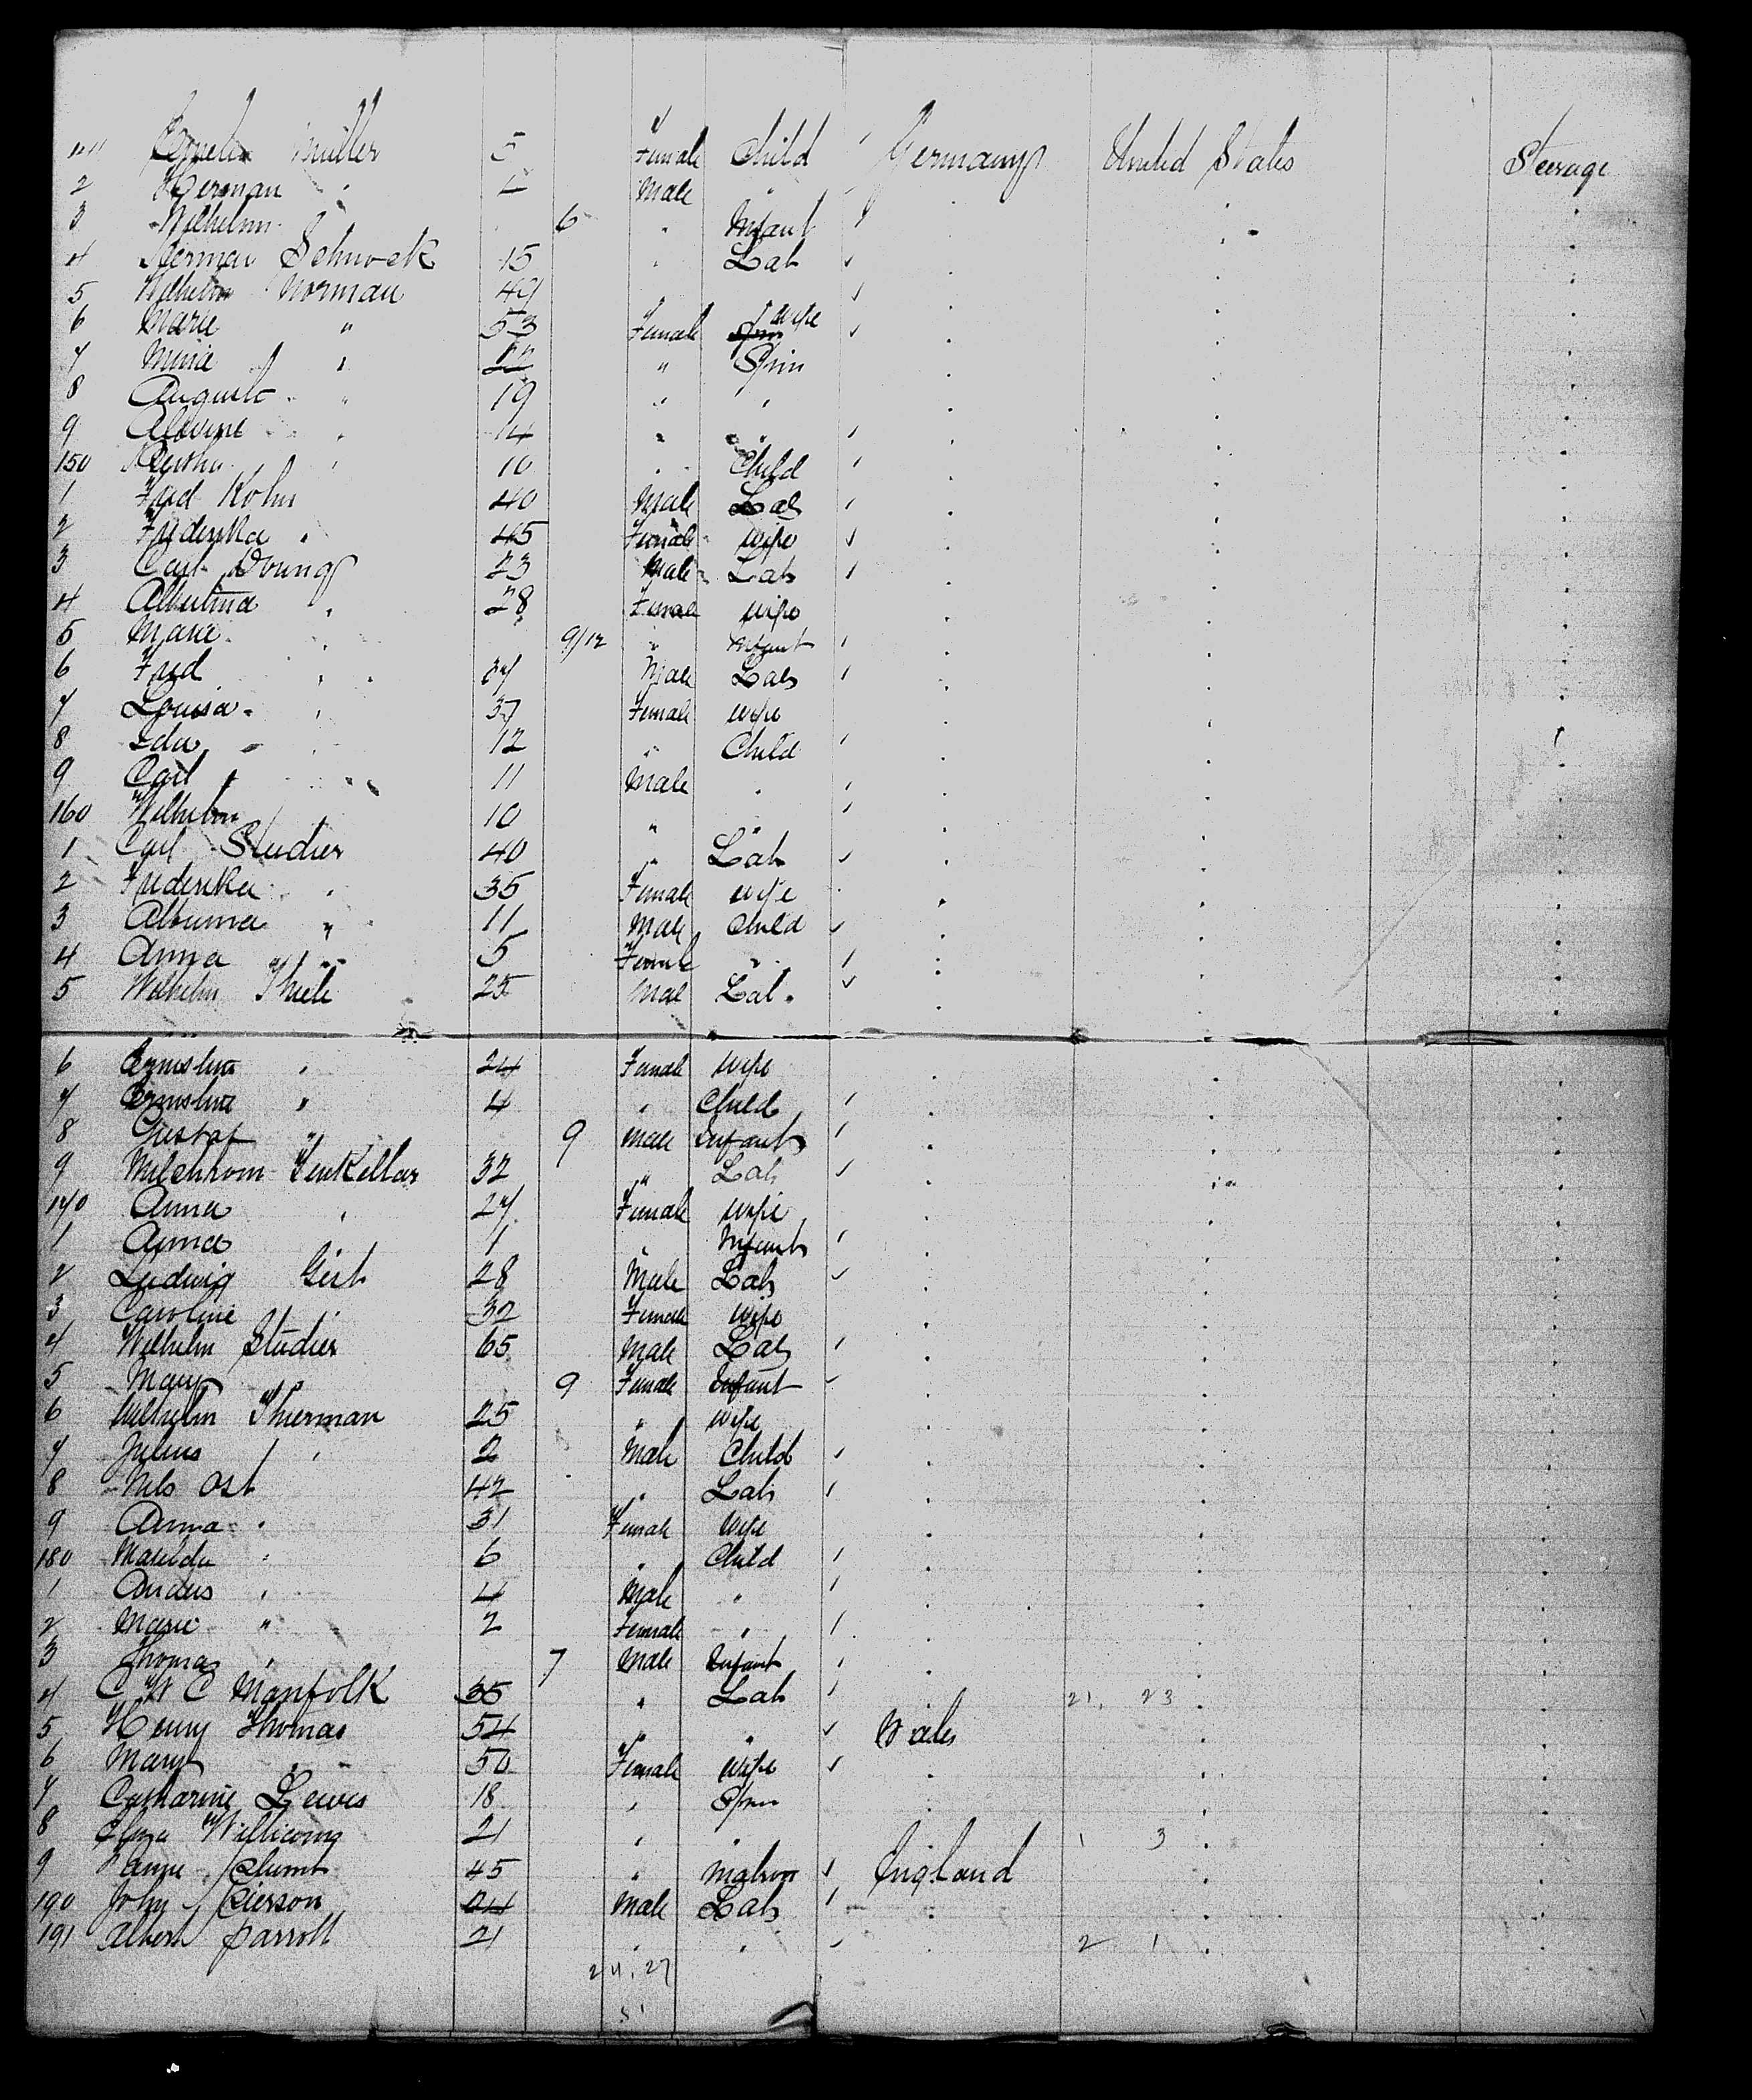 141 Müller 5 Female Child Germany United States Steerage
2 Herman " Male "
3 Wilhelm 6 " Infant
4 Herman Schwock 15 " Lab
5 Wilhelm Norman 49
6 Marie " 53 Female Wife
7 Minie " 22 " Spin
8 August " 19 " "
9 Alwine " 14 " "
150 Bertha " 10 " Child
1 Fred Kohn 40 Male Lab
2 Frederika " 45 Female wife
3 Carl Young 23 Male Lab
4 Albertina " 28 Female wife
5 Marie " 9/12 " Infant
6 Fred " 37 Male Lab
7 Louisa " 37 Female wife
8 Ida " 12 " Child
9 Carl " 11 Male "
160 Wilhelm 10 " "
1 Carl Studier 40 " Lab
2 Frederika " 35 Female wife
3 Albuma " 11 Male Child
4 Anna " 5 Female "
5 Wilhelm Thiele 25 Male Lab
6 Ernestine " 24 Female wife
7 Ernestine " 4 " Child
8 Gustaf " 9 Male Infant
9 32 " Lab
170 Anna " 27 Female wife
1 Anna 1 " Infant
2 Ludwig Gist 28 Male Lab
3 Caroline 32 Female wife
4 Wilhelm Studier 65 Male Lab
5 Mary 9 Female Infant
6 Wilhelm Thierman 25 " wife
7 Julius " 2 Male Child
8 Nels Ost 42 " Lab
9 Anna " 31 Female Wife
180 Matilda " 6 " Child
1 Anders " 4 Male "
2 Marie " 2 Female "
3 Thomas " 7 Male Infant
4 C W C Manfolk 35 " Lab 21. 23
5 Henry Thomas 54 " " Wales
6 Mary " 50 Female Wife
7 Catharine Lewis 18 " Spin
8 Williams 21 " " 1 3
9 45 " Matron England
190 John Pierson 24 Male Lab
191 Albert Parrott 21 " " 2 1
24. 27
51